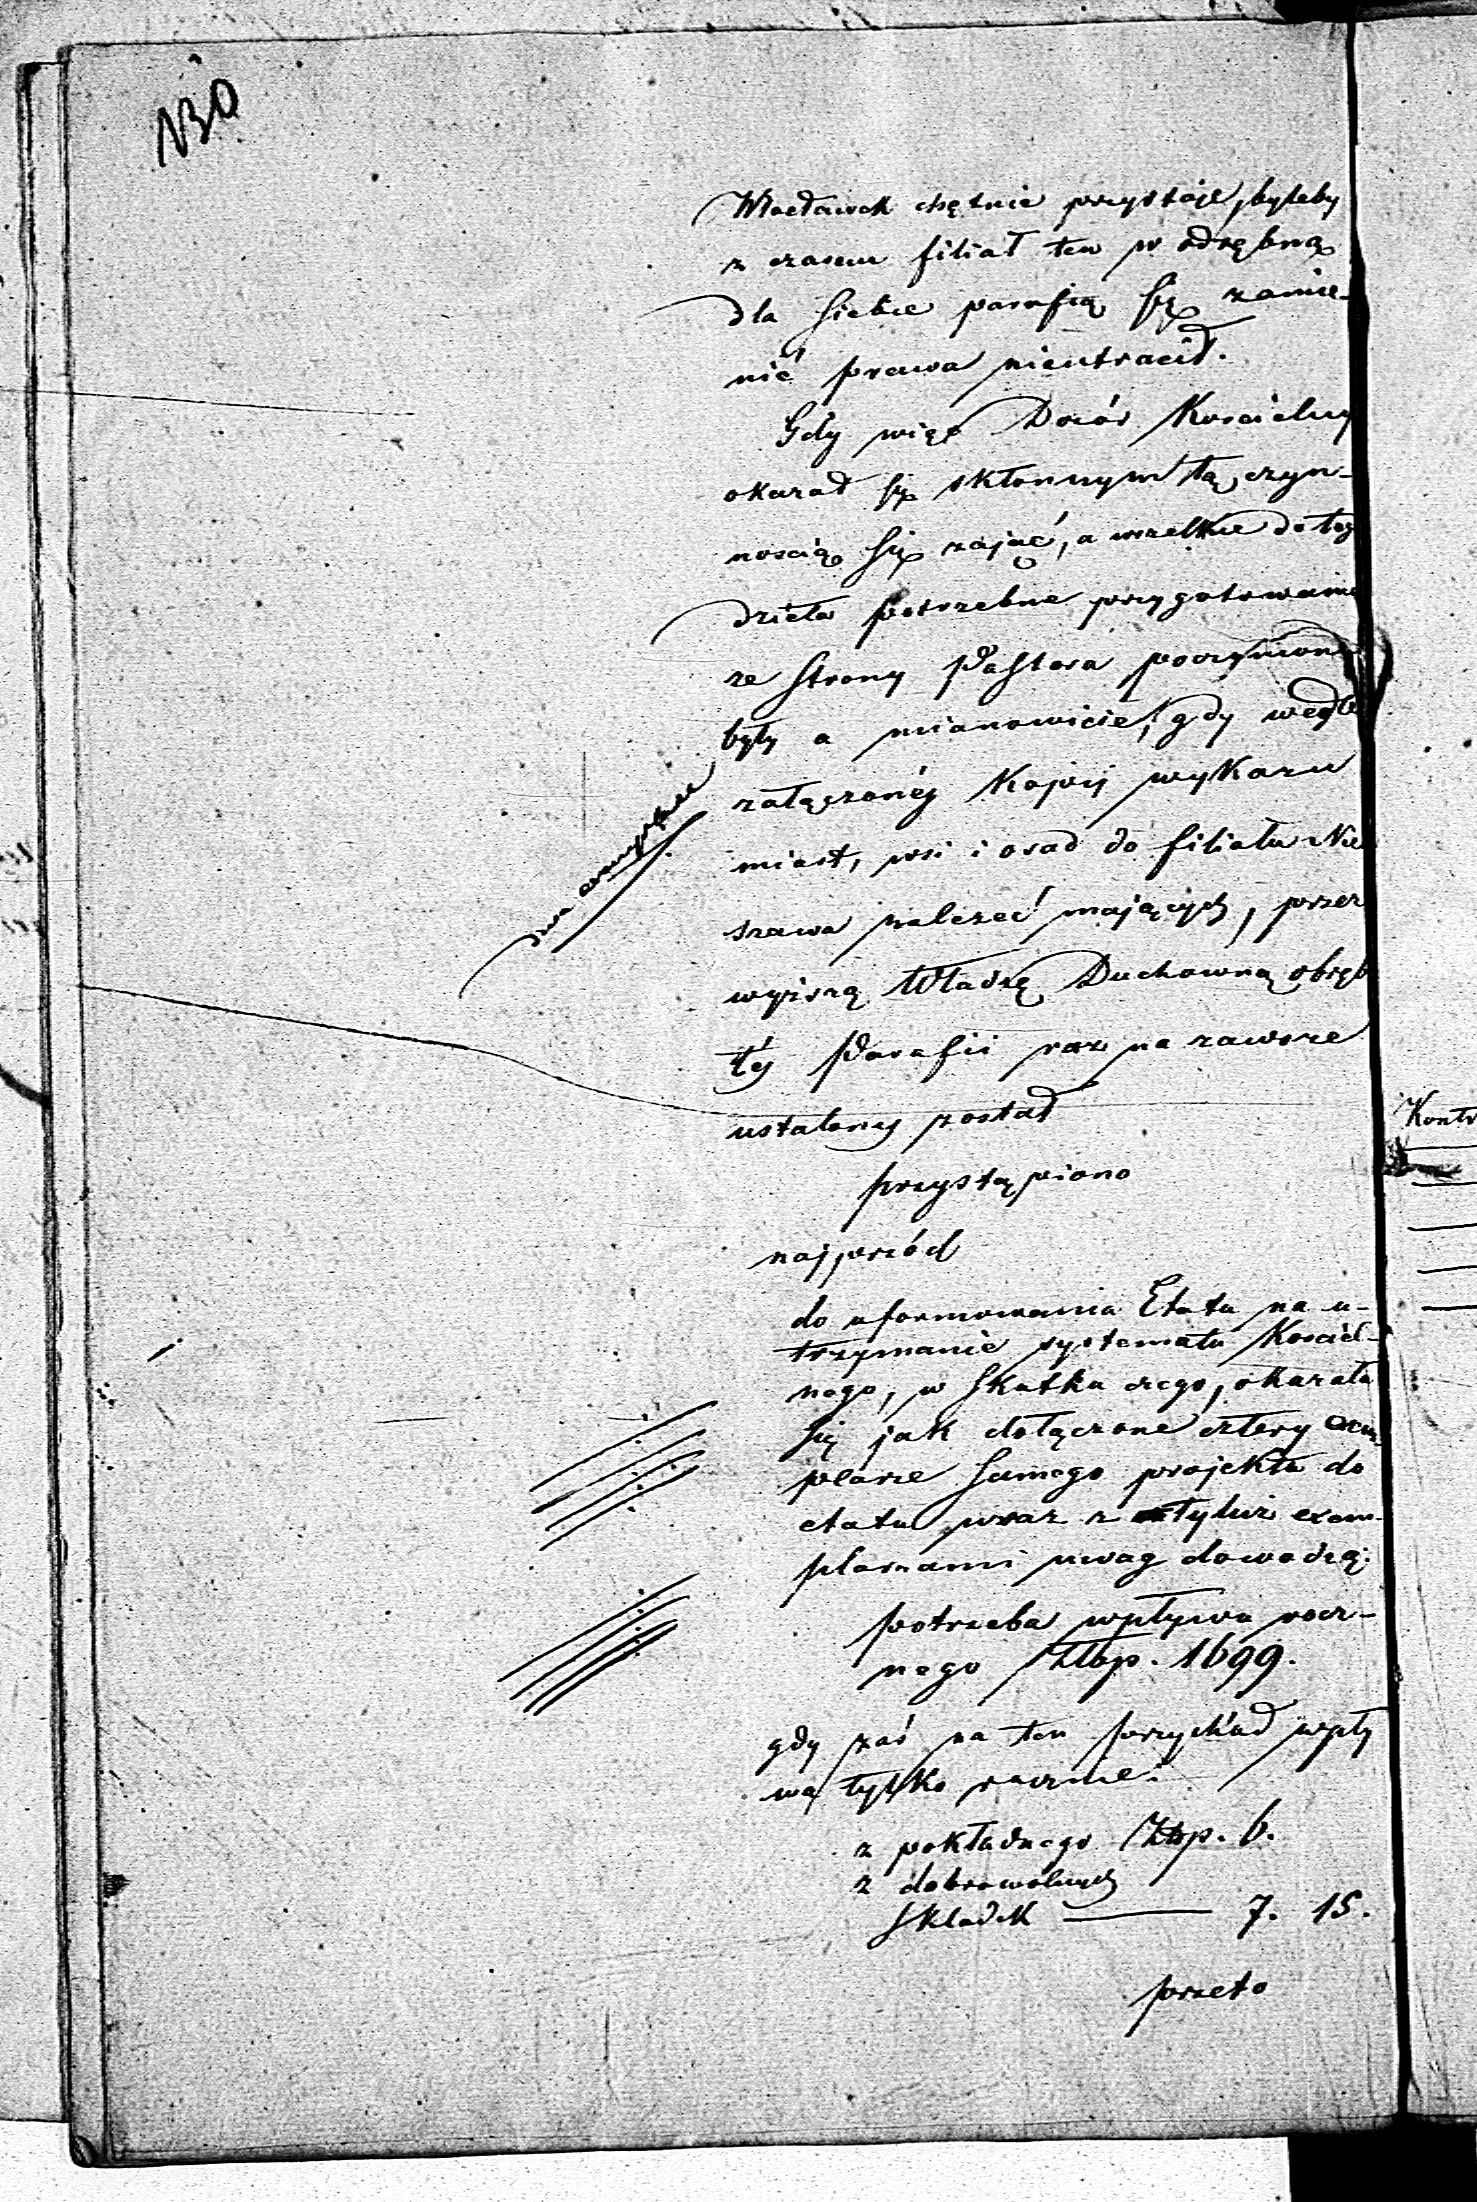 130
Włocławek chętnie przystaje, byleby
z czasem filiał ten w odrębną
dla siebie parafią się zamie-
nić prawa nieutracił.
Gdy więc Dozór Kościelny
okazał się skłonnym tą czyn-
nością się zająć, a wszelkie do tego
dzieła potrzebne przygotowania
ze strony Pastora poczynione
były a mianowicie, gdy wedle
załączonéj Kopij wykazu
miast, wsi i osad do filiału Nie
szawa należeć mających, przez
wyższą Władzę Duchowną obręb
téj Parafii raz na zawsze
ustalony został
przystąpiono
najprzód
do uformowania Etatu na u-
trzymanie systematu Kościel-
nego, w skutku czego, okazała
się jak dołączone cztery exem-
plarze samego projektu do
etatu wraz z tyluż exem-
plarzami uwag dowodzą:
potrzeba wpływu rocz-
nego Złp. 1699.
gdy zaś na ten przychód wpły
wa tylko rocznie:
z pokładnego Złp. 6.
z dobrowolnych
składek — 7. 15.
przeto
dwa
Kontr